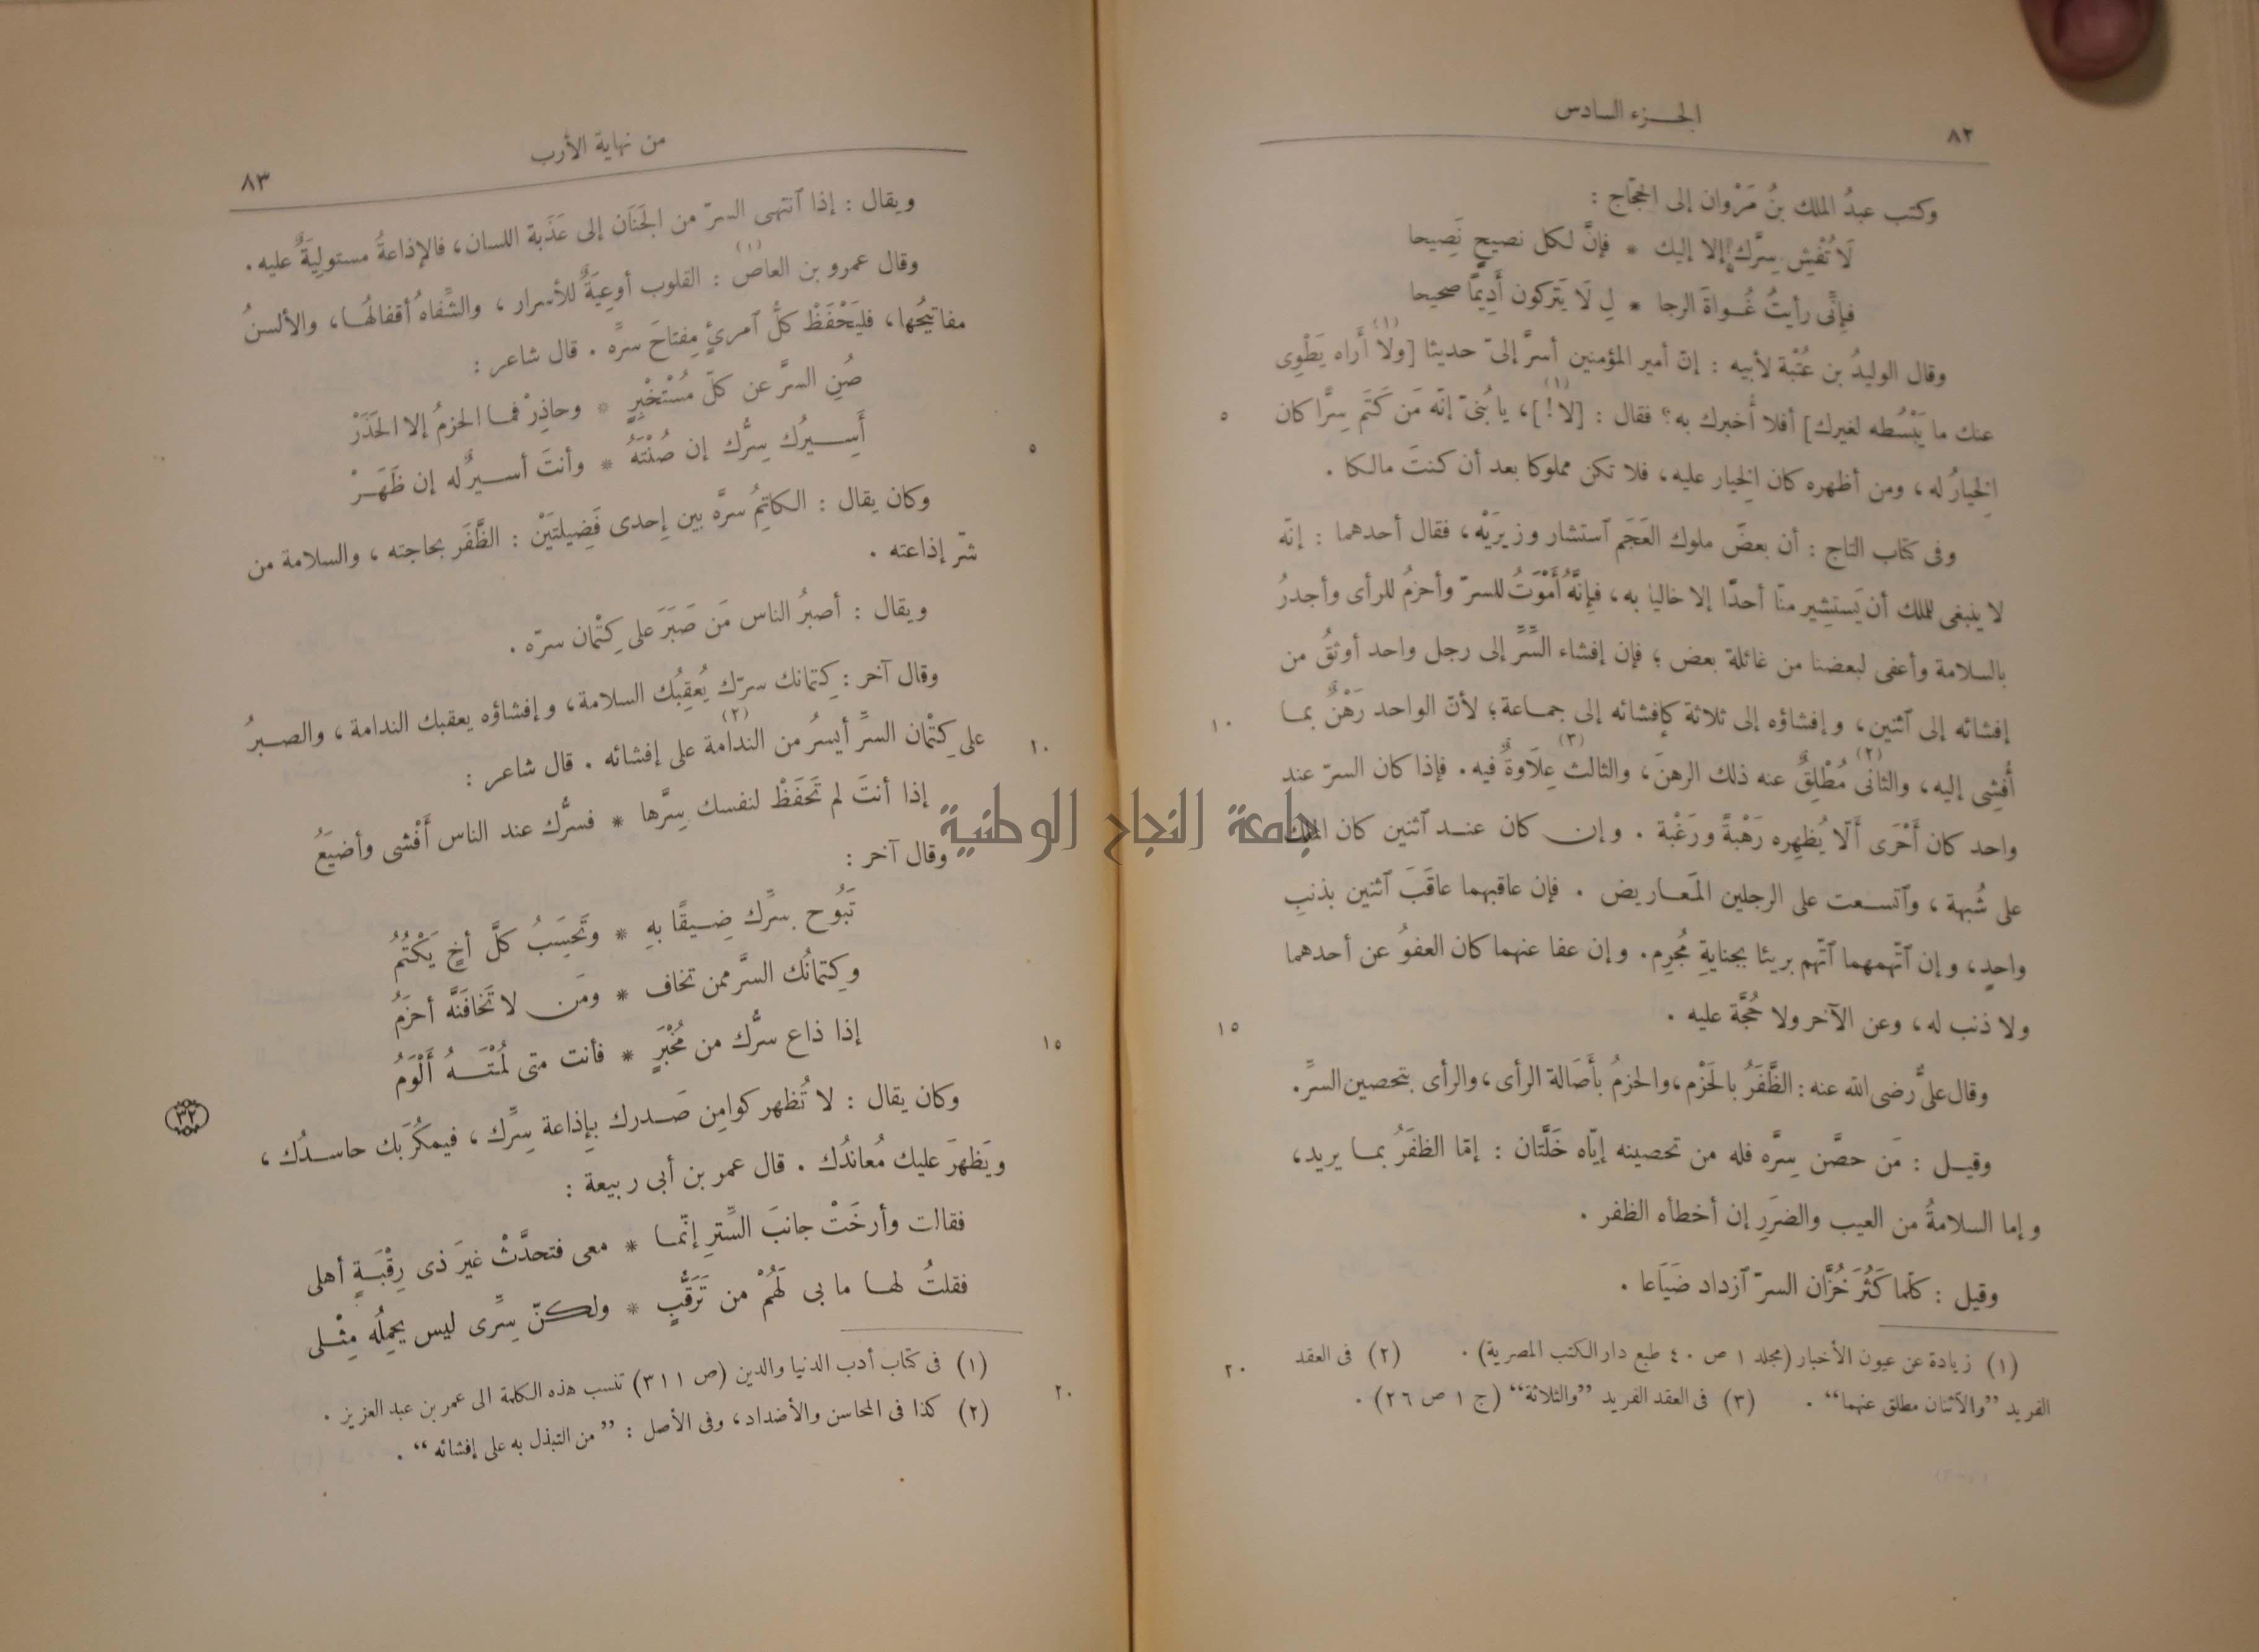 ٨٢
الجـزء السادس
وكتب عبدُ الملك بنُ مَرْوان إلى الحجّاج :
لَا تُفْشِ سِرَّك إلا إليك * فإنَّ لكل نصيحٍ نَصِيحا
فإنِّى رأيتُ غُـواةَ الرجا * لِ لَا يَتركون أَدِيمًا صحيحا
وقال الوليدُ بن عُتْبة لأبيه : إنّ أمير المؤمنين أسرَّ إلىّ حديثا [ولا(١) أَراه يَطْوِى
عنك ما يَبْسُطه لغيرك] أفلا أُخبرك به؟ فقال : [لا(١)!]، يا بُنىّ إنّه مَن كَتَم سِرًّا كان
٥
الخِيارُ له ، ومن أظهره كان الخِيار عليه، فلا تكن مملوكا بعد أن كنتَ مالكا .
وفى كتاب التاج : أن بعضَ ملوك العَجَم ٱستشار وزيرَيْه، فقال أحدهما : إنّه
لا ينبغى للملك أن يَستشِير منّا أحدًا إلا خاليا به، فإنَّهُ أَمْوَتُ للسرّ وأحزمُ للرأى وأجدرُ
بالسلامة وأعفى لبعضنا من غائلة بعض ؛ فإن إفشاء السِّرِّ إلى رجل واحد أوثقُ من
إفشائه إلى ٱثنين، وإفشاؤه إلى ثلاثة كإفشائه إلى جمـاعة؛ لأنّ الواحد رَهْنٌ بمـا
١٠
أُفشِى إليه، والثانى(٢) مُطْلِقٌ عنه ذلك الرهنَ، والثالث(٣) عِلَاوةٌ فيه. فإذا كان السرّ عند
واحد كان أَحْرَى أَلّا يُظهِره رَهْبةً ورَغْبة . وإن كان عنـد ٱثنين كان الملك
على شُبهة ، وٱتسـعت على الرجلين المَعـاريض . فإن عاقبهما عاقَبَ ٱثنين بذنبِ
واحدٍ، وإن ٱتّهمهما ٱتّهم بريئا بجنايةِ مُجرِم. وإن عفا عنهما كان العفوُ عن أحدهما
ولا ذنب له، وعن الآخر ولا حُجَّة عليه .
١٥
وقال علىٌّ رضى الله عنه : الظَّفَرُ بالحَزْم، والحزمُ بأَصَالة الرأى، والرأى بتحصين السرِّ.
وقيـل : مَن حصَّن سِرَّه فله من تحصينه إيّاه خَلَّتان : إمّا الظفَرُ بمـا يريد،
وإما السلامةُ من العيب والضرَرِ إن أخطأه الظفر .
وقيل : كلّما كَثُرَ خُزَّان السرّ ٱزداد ضَيَاعا .
(١) زيادة عن عيون الأخبار (مجلد ١ ص ٤٠ طبع دار الكتب المصرية) . (٢) فى العقد
٢٠
الفريد ”والآثنان مطلق عنهما“ . (٣) فى العقد الفريد ”والثلاثة“ (ج ١ ص ٢٦) .
من نهاية الأرب
٨٣
ويقال : إذا ٱنتهى السرّ من الجَنَان إلى عَذَبة اللسان، فالإذاعةُ مستولِيَةٌ عليه.
وقال عمرو بن العاص(١) : القلوب أوعِيَةٌ للأسرار ، والشِّفاهُ أقفالُهـا، والألسنُ
مفاتيحُها، فليَحْفَظْ كلُّ ٱمرئٍ مِفتاحَ سرِّه . قال شاعر :
صُنِ السرَّ عن كلّ مُسْتَخْبِرٍ * وحاذِرْ فمـا الحزمُ إلا الحَذَرْ
أَسِـيرُك سِرُّك إن صُنْتَهُ * وأنتَ أسـيرٌ له إن ظَهَـرْ
٥
وكان يقال : الكاتِمُ سرَّه بين إحدى فَضِيلتَيْن : الظَّفَر بحاجته ، والسلامة من
شرّ إذاعته .
ويقال : أصبرُ الناس مَن صَبَرَ على كِتْمان سرّه .
وقال آخر : كِتمانك سرّك يُعقِبُك السلامة، وإفشاؤه يعقبك الندامة ، والصـبرُ
على كِتْمان السرِّ أيسرُ من الندامة(٢) على إفشائه . قال شاعر :
١٠
إذا أنتَ لم تَحفَظْ لنفسك سِرَّها * فسرُّك عند الناس أَفْشى وأضيَعُ
وقال آخر :
تَبُوح بسرِّك ضِـيقًا بهِ * وتَحسَبُ كلَّ أخٍ يَكْتُمُ
وكِتمانُك السرَّ ممن تخاف * ومَن لا تَخافَنَّه أحزَمُ
إذا ذاع سرُّك من مُخْبَرٍ * فأنت متى لُمْتَـهُ أَلْوَمُ
١٥
وكان يقال : لا تُظهر كوامِن صَـدرك بإذاعة سِرِّك ، فيمكُرَ بك حاسـدُك ،
٣٢
ويَظهرَ عليك مُعاندُك . قال عمر بن أبى ربيعة :
فقالت وأرخَتْ جانبَ السِّترِ إنّمـا * معى فتحدَّثْ غيرَ ذى رِقْبَـةٍ أهلى
فقلتُ لهـا ما بى لَهُمْ من تَرَقُّبٍ * ولكنّ سِرِّى ليس يَحمِلُه مِثْـلى
(١) فى كتاب أدب الدنيا والدين (ص ٣١١) تنسب هذه الكلمة الى عمر بن عبد العزيز .
٢٠
(٢) كذا فى المحاسن والأضداد، وفى الأصل : ”من التبذل به على إفشائه“ .
جامعة النجاح الوطنية